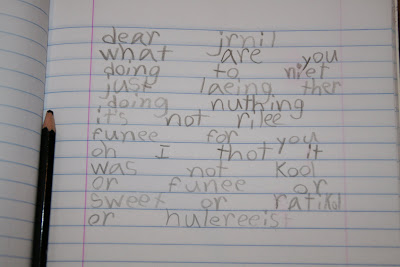 dear jrnil
what are you
doing to niet
just laeing ther
doing nuthing
it's not rilee
funee for you
oh I thot it
was not kool
or funee or
sweet or ratikl
or hulereeist